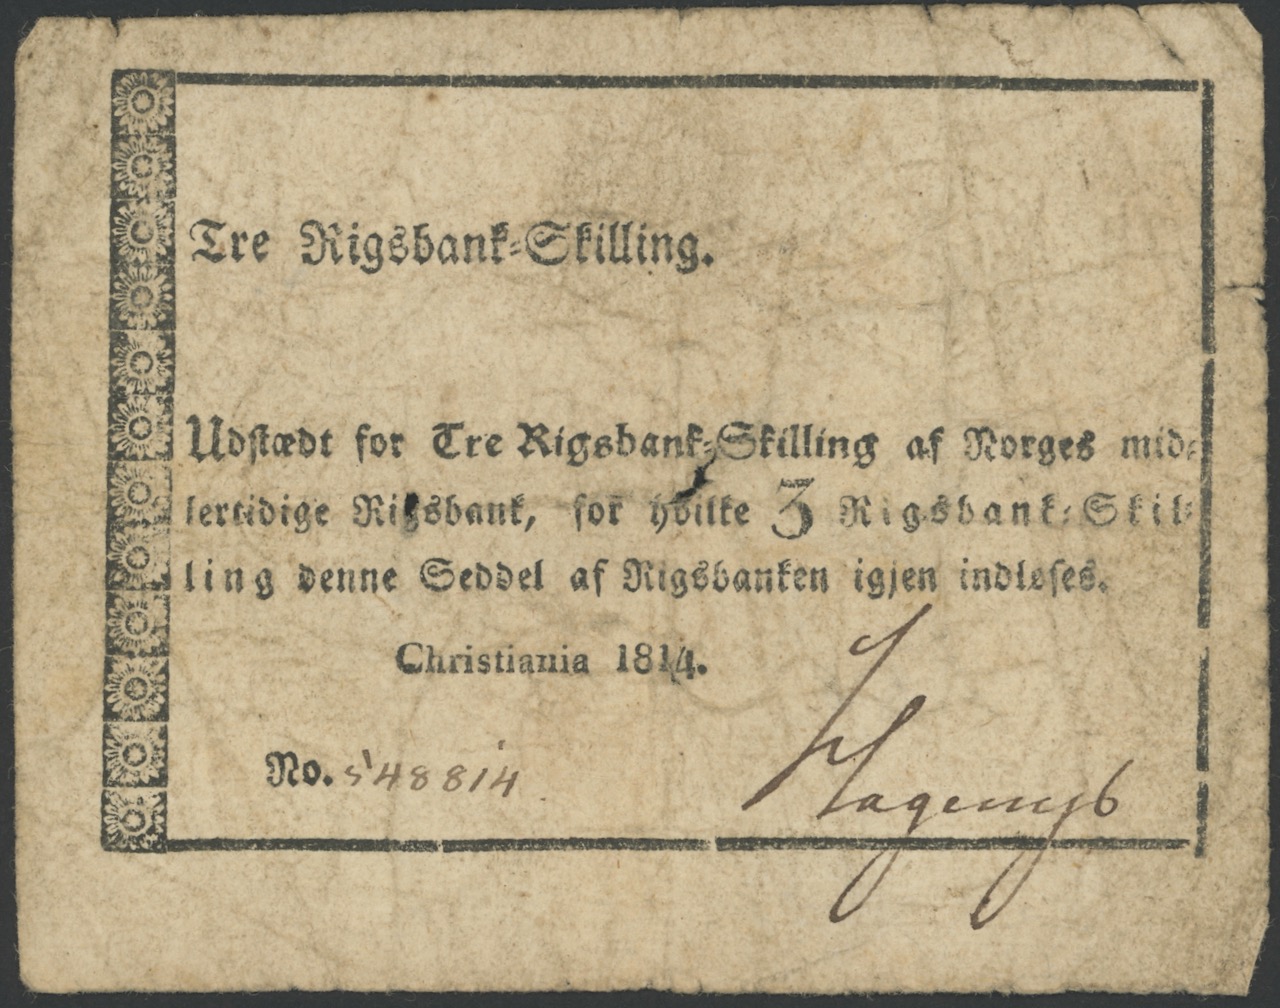 Tre Rigsbank-Skilling.
Udstædt for Tre Rigsbank-Skilling af Norges mid-
lertidige Rigsbank, for hvilke 3 Rigsbank-Skil-
ling denne Seddel af Rigsbanken igjen indløses.
Christiania 1814.
No. 548814